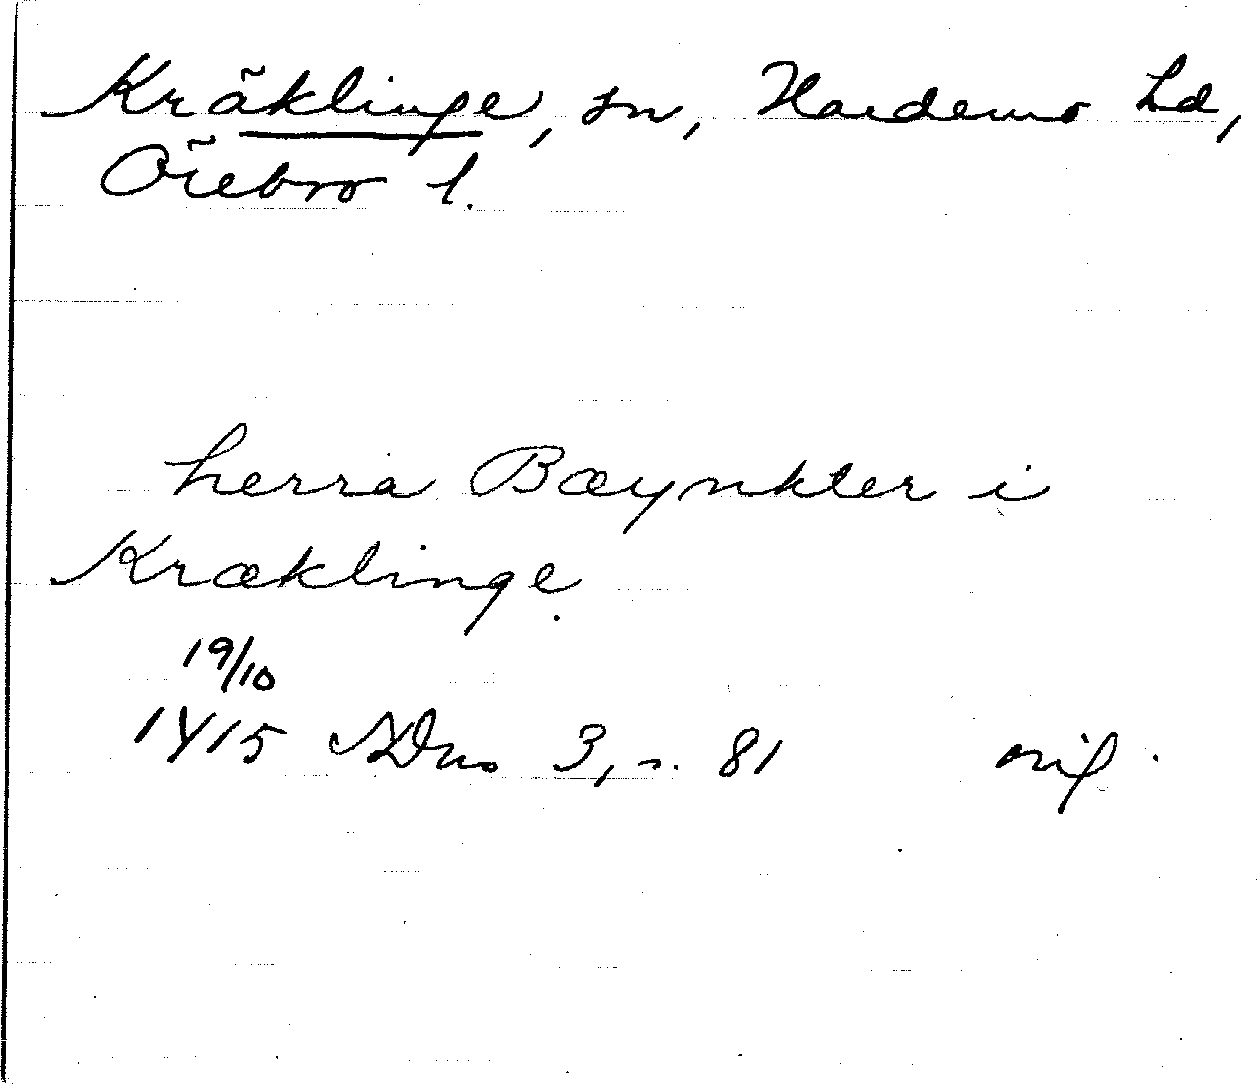 Kräklinge, sn, Hardemo hd,
Örebro l.
herra Bæynkter i
Kræklinge.
19/10
1415 SDns 3, s. 81 orig.